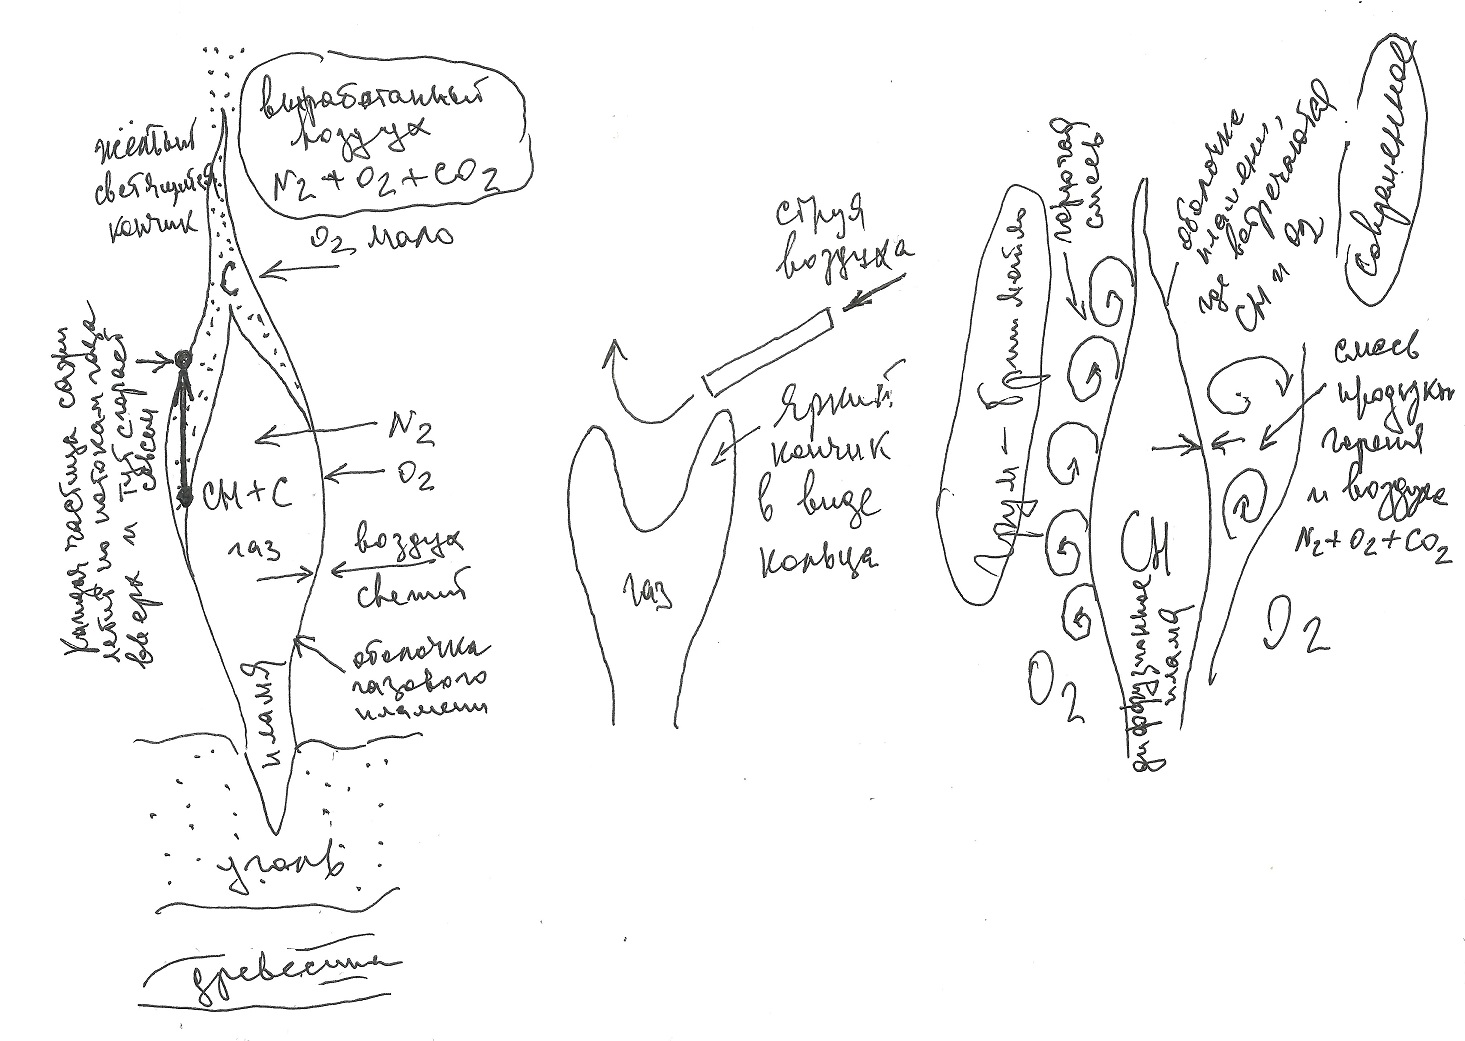 выработанный
воздух
N2 + O2 + CO2
жёлтый
светящийся
кончик
O2 мало
C
Каждая частица сажи
летит по потокам газа
вверх и тут сгорает
совсем
N2
O2
CH + C
газ
воздух
свежий
оболочка
газового
пламени
пламя
уголь
древесина
струя
воздуха
Яркий
кончик
в виде
кольца
газ
горючая
смесь
оболочка
пламени,
где встречаются
CH и O2
Современное
смесь
продукты
горения
и воздуха
N2 + O2 + CO2
CH
диффузионное
пламя
O2
O2